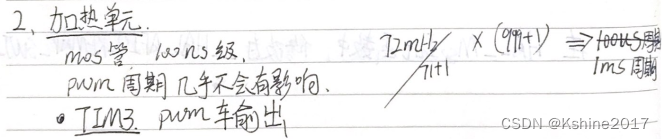 2、加热单元.
mos管 100ns级,
pwm周期几乎不会有影响.
• TIM3. pwm 车俞出
72mHz / 71+1 × (999+1) ⇒ 100us周期
1ms周期
CSDN @Kshine2017